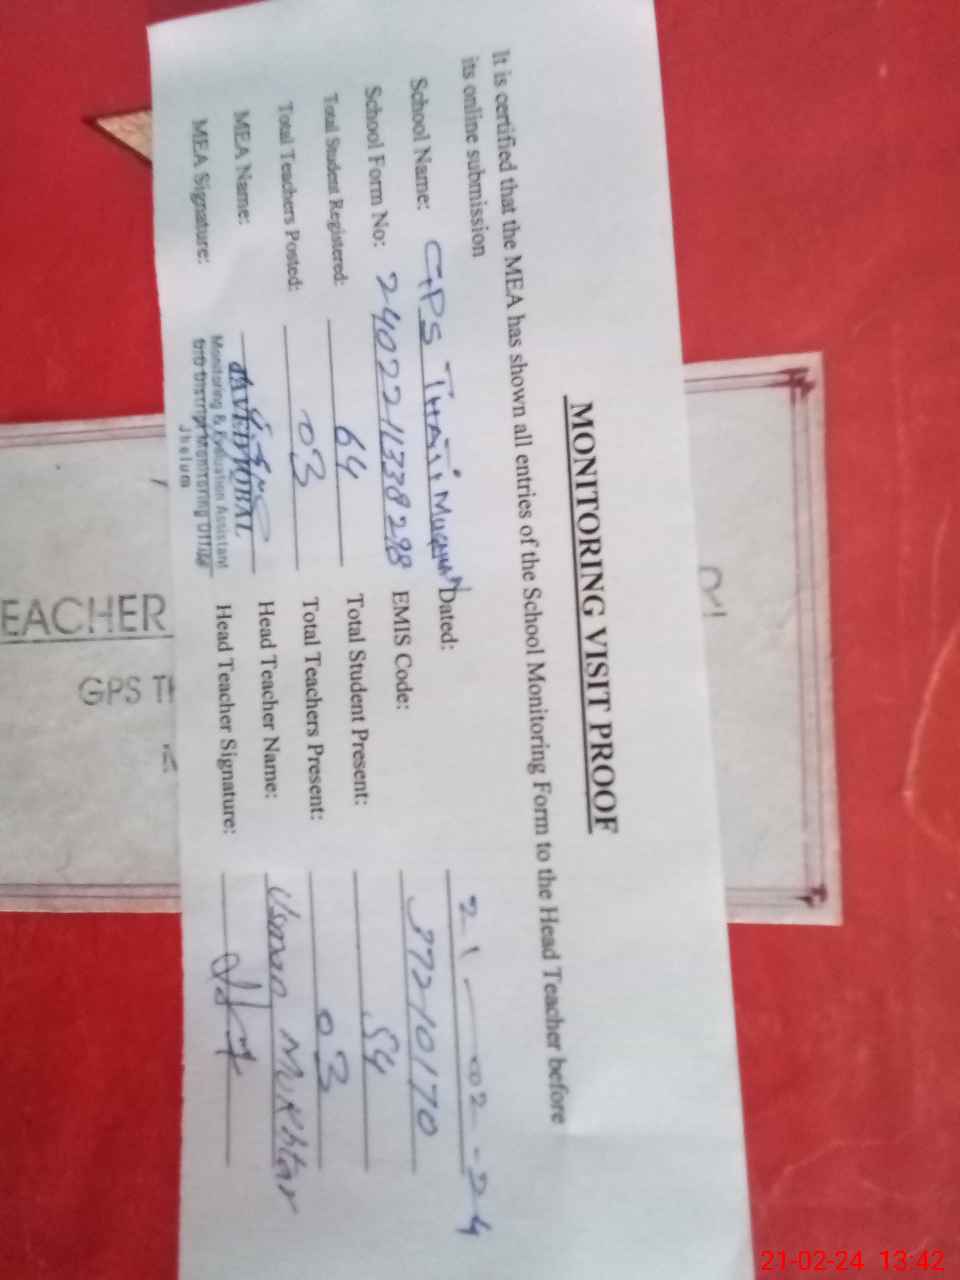 MONITORING VISIT PROOF
It is certified that the MEA has shown all entries of the School Monitoring Form to the Head Teacher before
its online submission
School Name: GPS Dated: 21-02-24
School Form No: EMIS Code: 37210170
Total Student Registered: 64 Total Student Present: 54
Total Teachers Posted: 03 Total Teachers Present: 03
MEA Name: JAVED IQBAL Head Teacher Name: Usman Mukhtar
Monitoring & Evaluation Assistant
MEA Signature: Head Teacher Signature:
Jhelum
EACHER
GPS TH
21-02-24 13:42